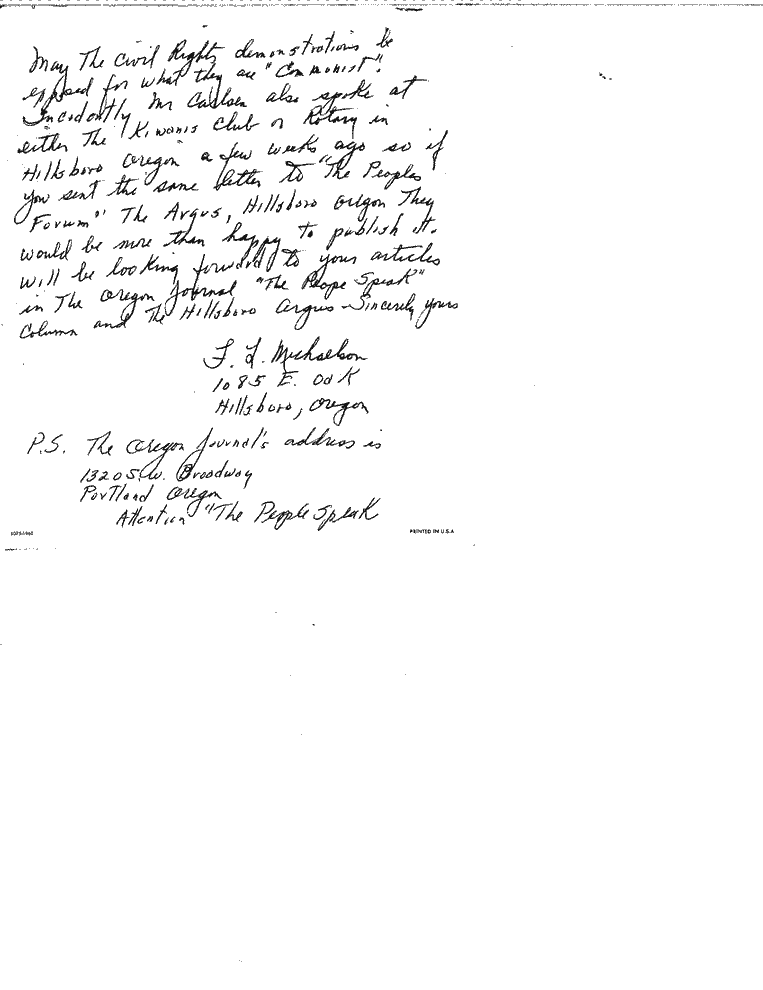 May The Civil Rights demonstrations be
exposed for what they are "Communist".
Incedently Mr Carlson also spoke at
either The Kiwanis Club or Rotary in
Hillsboro Oregon a few weeks ago so if
you sent the same letter to "The Peoples
Forum" The Argus, Hillsboro Oregon They
would be more than happy to publish it.
will be looking forward to your articles
in The Oregon Journal "The Peope Speak"
Column and The Hillsboro Argus - Sincerely yours
F. L. Michaelson
1085 E. Oak
Hillsboro, Oregon
P.S. The Oregon Journal's address is
1320 S.W. Broadway
Portland Oregon
Attention "The People Speak
PRINTED IN U.S.A